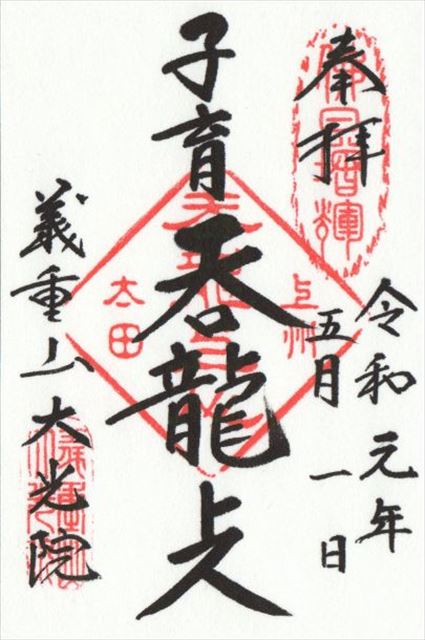 奉拝
佛日増輝
令和元年
五月一日
子育呑龍上人
上州
太田
義重山大光院